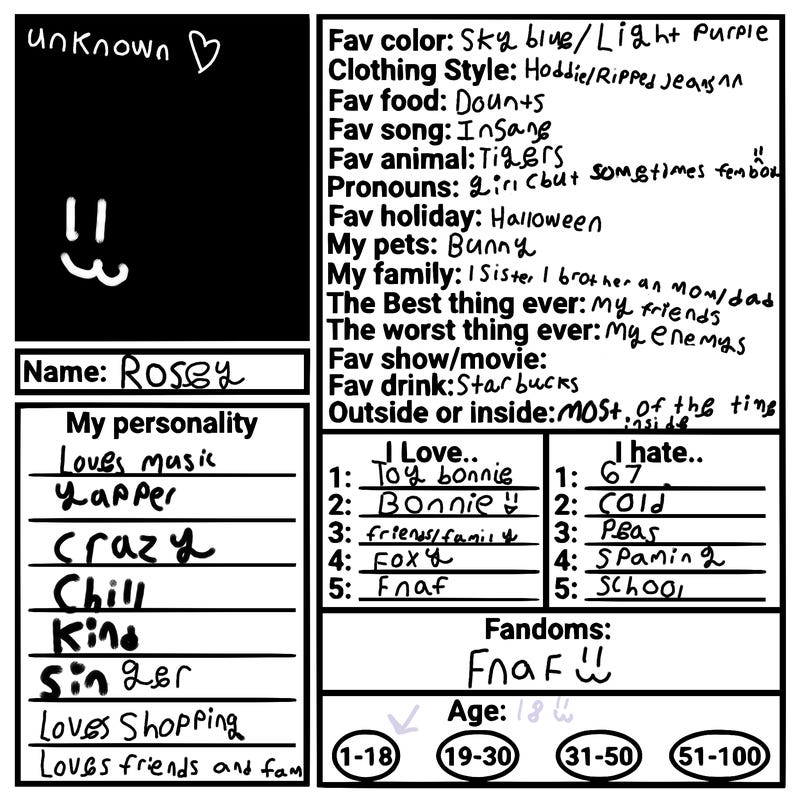 unknown ♡
Name: Rosey
My personality
Loves music
yapper
crazy
Chill
Kind
Singer
Loves Shopping
Loves friends and fam
Fav color: Sky blue/Light Purple
Clothing Style: Hoddie/Ripped Jeans
Fav food: Dounts
Fav song: Insane
Fav animal: Tigers
Pronouns: girl (but sometimes femboy
Fav holiday: Halloween
My pets: Bunny
My family: 1 Sister 1 brother an mom/dad
The Best thing ever: my friends
The worst thing ever: my enemys
Fav show/movie:
Fav drink: Starbucks
Outside or inside: most of the time
inside
I Love..
1: Toy bonnie
2: Bonnie
3: friends/family
4: Foxy
5: Fnaf
I hate..
1: 67
2: cold
3: Peas
4: spaming
5: school
Fandoms:
Fnaf
Age: 18
1-18 19-30 31-50 51-100